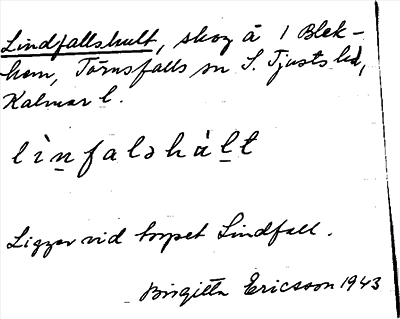 Lindfallshult, skog å 1 Blek-
hem, Törnsfalls sn S. Tjusts hd,
Kalmar l.
lìn̲faləhàl̲t
Ligger vid torpet Lindfall.
Birgitta Ericsson 1943